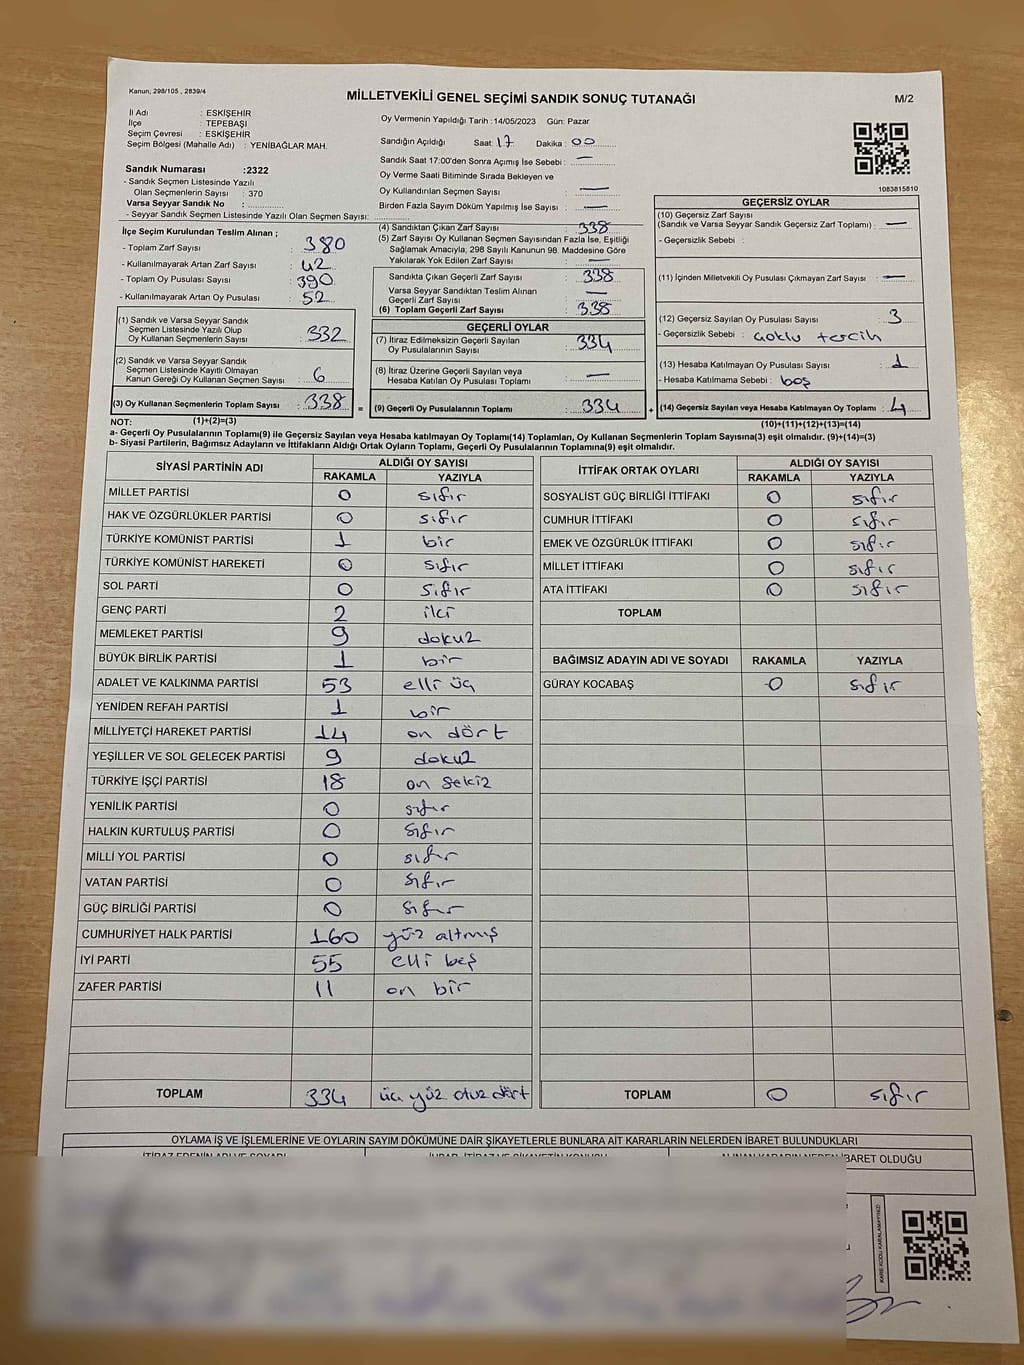 Kanun; 298/105 , 2839/4
MİLLETVEKİLİ GENEL SEÇİMİ SANDIK SONUÇ TUTANAĞI
M/2
İl Adı : ESKİŞEHİR
İlçe : TEPEBAŞI
Seçim Çevresi : ESKİŞEHİR
Seçim Bölgesi (Mahalle Adı) : YENİBAĞLAR MAH.
Oy Vermenin Yapıldığı Tarih :14/05/2023 Gün: Pazar
Sandığın Açıldığı Saat: 17 Dakika : 00
Sandık Saat 17:00'den Sonra Açımış İse Sebebi : —
Oy Verme Saati Bitiminde Sırada Bekleyen ve
Oy Kullandırılan Seçmen Sayısı : —
Birden Fazla Sayım Döküm Yapılmış İse Sayısı : —
1083815810
Sandık Numarası :2322
- Sandık Seçmen Listesinde Yazılı
Olan Seçmenlerin Sayısı : 370
Varsa Seyyar Sandık No :
- Seyyar Sandık Seçmen Listesinde Yazılı Olan Seçmen Sayısı:
İlçe Seçim Kurulundan Teslim Alınan ;
- Toplam Zarf Sayısı : 380
- Kullanılmayarak Artan Zarf Sayısı : 42
- Toplam Oy Pusulası Sayısı : 390
- Kullanılmayarak Artan Oy Pusulası : 52
(1) Sandık ve Varsa Seyyar Sandık
Seçmen Listesinde Yazılı Olup
Oy Kullanan Seçmenlerin Sayısı : 332
(2) Sandık ve Varsa Seyyar Sandık
Seçmen Listesinde Kayıtlı Olmayan
Kanun Gereği Oy Kullanan Seçmen Sayısı : 6
(3) Oy Kullanan Seçmenlerin Toplam Sayısı : 338
(1)+(2)=(3)
(4) Sandıktan Çıkan Zarf Sayısı : 338
(5) Zarf Sayısı Oy Kullanan Seçmen Sayısından Fazla İse, Eşitliği
Sağlamak Amacıyla, 298 Sayılı Kanunun 98. Maddesine Göre
Yakılarak Yok Edilen Zarf Sayısı : —
Sandıkta Çıkan Geçerli Zarf Sayısı : 338
Varsa Seyyar Sandıktan Teslim Alınan
Geçerli Zarf Sayısı : —
(6) Toplam Geçerli Zarf Sayısı : 338
GEÇERLİ OYLAR
(7) İtiraz Edilmeksizin Geçerli Sayılan
Oy Pusulalarının Sayısı : 334
(8) İtiraz Üzerine Geçerli Sayılan veya
Hesaba Katılan Oy Pusulası Toplamı : —
= (9) Geçerli Oy Pusulalarının Toplamı : 334
GEÇERSİZ OYLAR
(10) Geçersiz Zarf Sayısı
(Sandık ve Varsa Seyyar Sandık Geçersiz Zarf Toplamı) : —
- Geçersizlik Sebebi :
(11) İçinden Milletvekili Oy Pusulası Çıkmayan Zarf Sayısı : —
(12) Geçersiz Sayılan Oy Pusulası Sayısı : 3
- Geçersizlik Sebebi : çoklu tercih
(13) Hesaba Katılmayan Oy Pusulası Sayısı : 1
- Hesaba Katılmama Sebebi : boş
+ (14) Geçersiz Sayılan veya Hesaba Katılmayan Oy Toplamı : 4
(10)+(11)+(12)+(13)=(14)
NOT:
a- Geçerli Oy Pusulalarının Toplamı(9) ile Geçersiz Sayılan veya Hesaba katılmayan Oy Toplamı(14) Toplamları, Oy Kullanan Seçmenlerin Toplam Sayısına(3) eşit olmalıdır. (9)+(14)=(3)
b- Siyasi Partilerin, Bağımsız Adayların ve İttifakların Aldığı Ortak Oyların Toplamı, Geçerli Oy Pusulalarının Toplamına(9) eşit olmalıdır.
SİYASİ PARTİNİN ADI ALDIĞI OY SAYISI
RAKAMLA YAZIYLA
MİLLET PARTİSİ 0 sıfır
HAK VE ÖZGÜRLÜKLER PARTİSİ 0 sıfır
TÜRKİYE KOMÜNİST PARTİSİ 1 bir
TÜRKİYE KOMÜNİST HAREKETİ 0 sıfır
SOL PARTİ 0 sıfır
GENÇ PARTİ 2 iki
MEMLEKET PARTİSİ 9 dokuz
BÜYÜK BİRLİK PARTİSİ 1 bir
ADALET VE KALKINMA PARTİSİ 53 elli üç
YENİDEN REFAH PARTİSİ 1 bir
MİLLİYETÇİ HAREKET PARTİSİ 14 on dört
YEŞİLLER VE SOL GELECEK PARTİSİ 9 dokuz
TÜRKİYE İŞÇİ PARTİSİ 18 on sekiz
YENİLİK PARTİSİ 0 sıfır
HALKIN KURTULUŞ PARTİSİ 0 sıfır
MİLLİ YOL PARTİSİ 0 sıfır
VATAN PARTİSİ 0 sıfır
GÜÇ BİRLİĞİ PARTİSİ 0 sıfır
CUMHURİYET HALK PARTİSİ 160 yüz altmış
İYİ PARTİ 55 elli beş
ZAFER PARTİSİ 11 on bir
TOPLAM 334 üç yüz otuz dört
İTTİFAK ORTAK OYLARI ALDIĞI OY SAYISI
RAKAMLA YAZIYLA
SOSYALİST GÜÇ BİRLİĞİ İTTİFAKI 0 sıfır
CUMHUR İTTİFAKI 0 sıfır
EMEK VE ÖZGÜRLÜK İTTİFAKI 0 sıfır
MİLLET İTTİFAKI 0 sıfır
ATA İTTİFAKI 0 sıfır
TOPLAM
BAĞIMSIZ ADAYIN ADI VE SOYADI RAKAMLA YAZIYLA
GÜRAY KOCABAŞ 0 sıfır
TOPLAM 0 sıfır
OYLAMA İŞ VE İŞLEMLERİNE VE OYLARIN SAYIM DÖKÜMÜNE DAİR ŞİKAYETLERLE BUNLARA AİT KARARLARIN NELERDEN İBARET BULUNDUKLARI
İTİRAZ EDENİN ADI VE SOYADI ALINAN KARARIN NEDEN İBARET OLDUĞU
KARE KODU KARALAMAYINIZ!